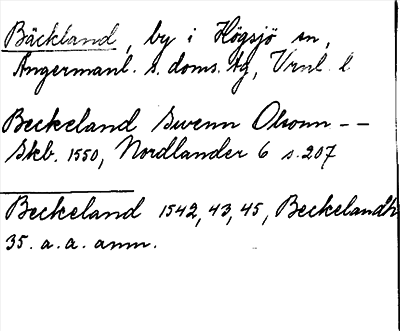 Bäckland, by i Högsjö sn,
Ångermanl. s. doms. tg, Vrnl. l
Beckeland Swenn Olsonn - -
Skb. 1550, Nordlander 6 s. 207
Beckeland 1542, 43, 45, Beckelandh
35. a. a. anm.